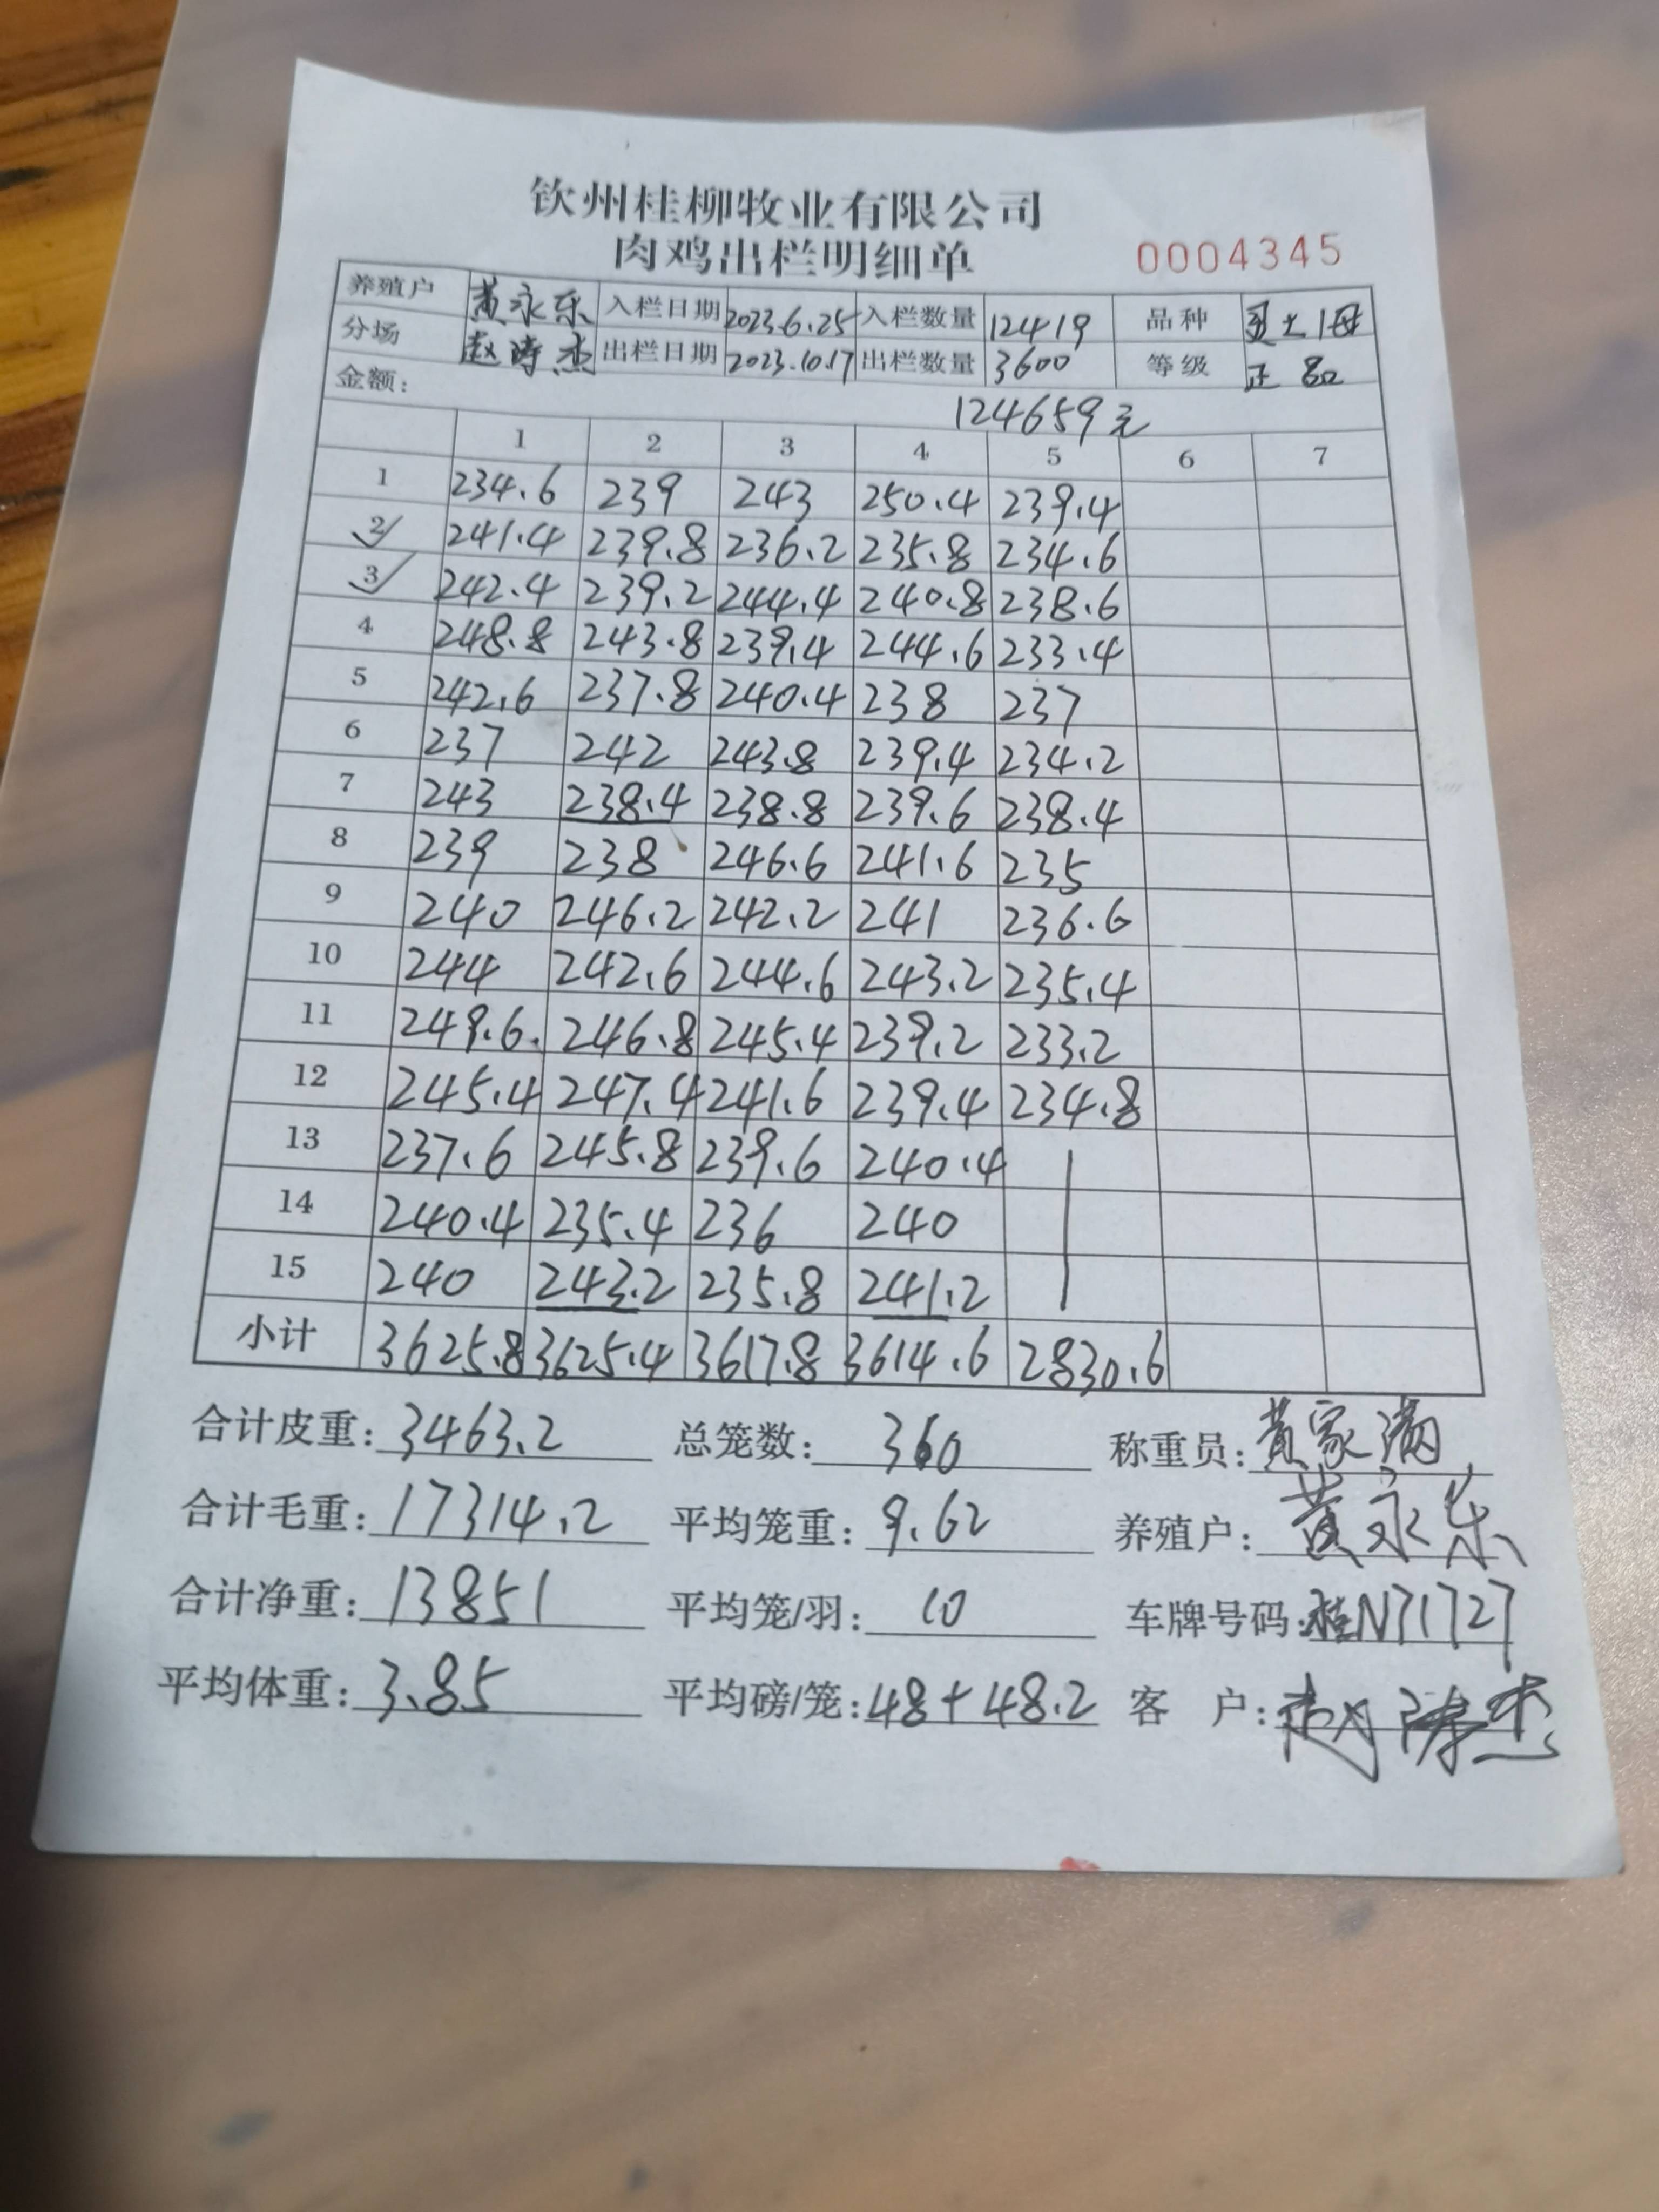 钦州桂柳牧业有限公司
肉鸡出栏明细单 0004345
养殖户 黄永乐 入栏日期 2023.6.25 入栏数量 12419 品种 土1母
分场 赵涛杰 出栏日期 2023.10.17 出栏数量 3600 等级 正品
金额: 124659元
1 2 3 4 5 6 7
1 234.6 239 243 250.4 239.4
2 241.4 239.8 236.2 235.8 234.6
3 242.4 239.2 244.4 240.8 238.6
4 248.8 243.8 239.4 244.6 233.4
5 242.6 237.8 240.4 238 237
6 237 242 243.8 239.4 234.2
7 243 238.4 238.8 239.6 238.4
8 239 238 246.6 241.6 235
9 240 246.2 242.2 241 236.6
10 244 242.6 244.6 243.2 235.4
11 249.6. 246.8 245.4 239.2 233.2
12 245.4 247.4 241.6 239.4 234.8
13 237.6 245.8 239.6 240.4
14 240.4 235.4 236 240
15 240 243.2 235.8 241.2
小计 3625.8 3625.4 3617.8 3614.6 2830.6
合计皮重: 3463.2 总笼数: 360 称重员: 黄家满
合计毛重: 17314.2 平均笼重: 9.62 养殖户: 黄永乐
合计净重: 13851 平均笼/羽: 10 车牌号码: 桂N71727
平均体重: 3.85 平均磅/笼: 48+48.2 客 户: 赵涛杰